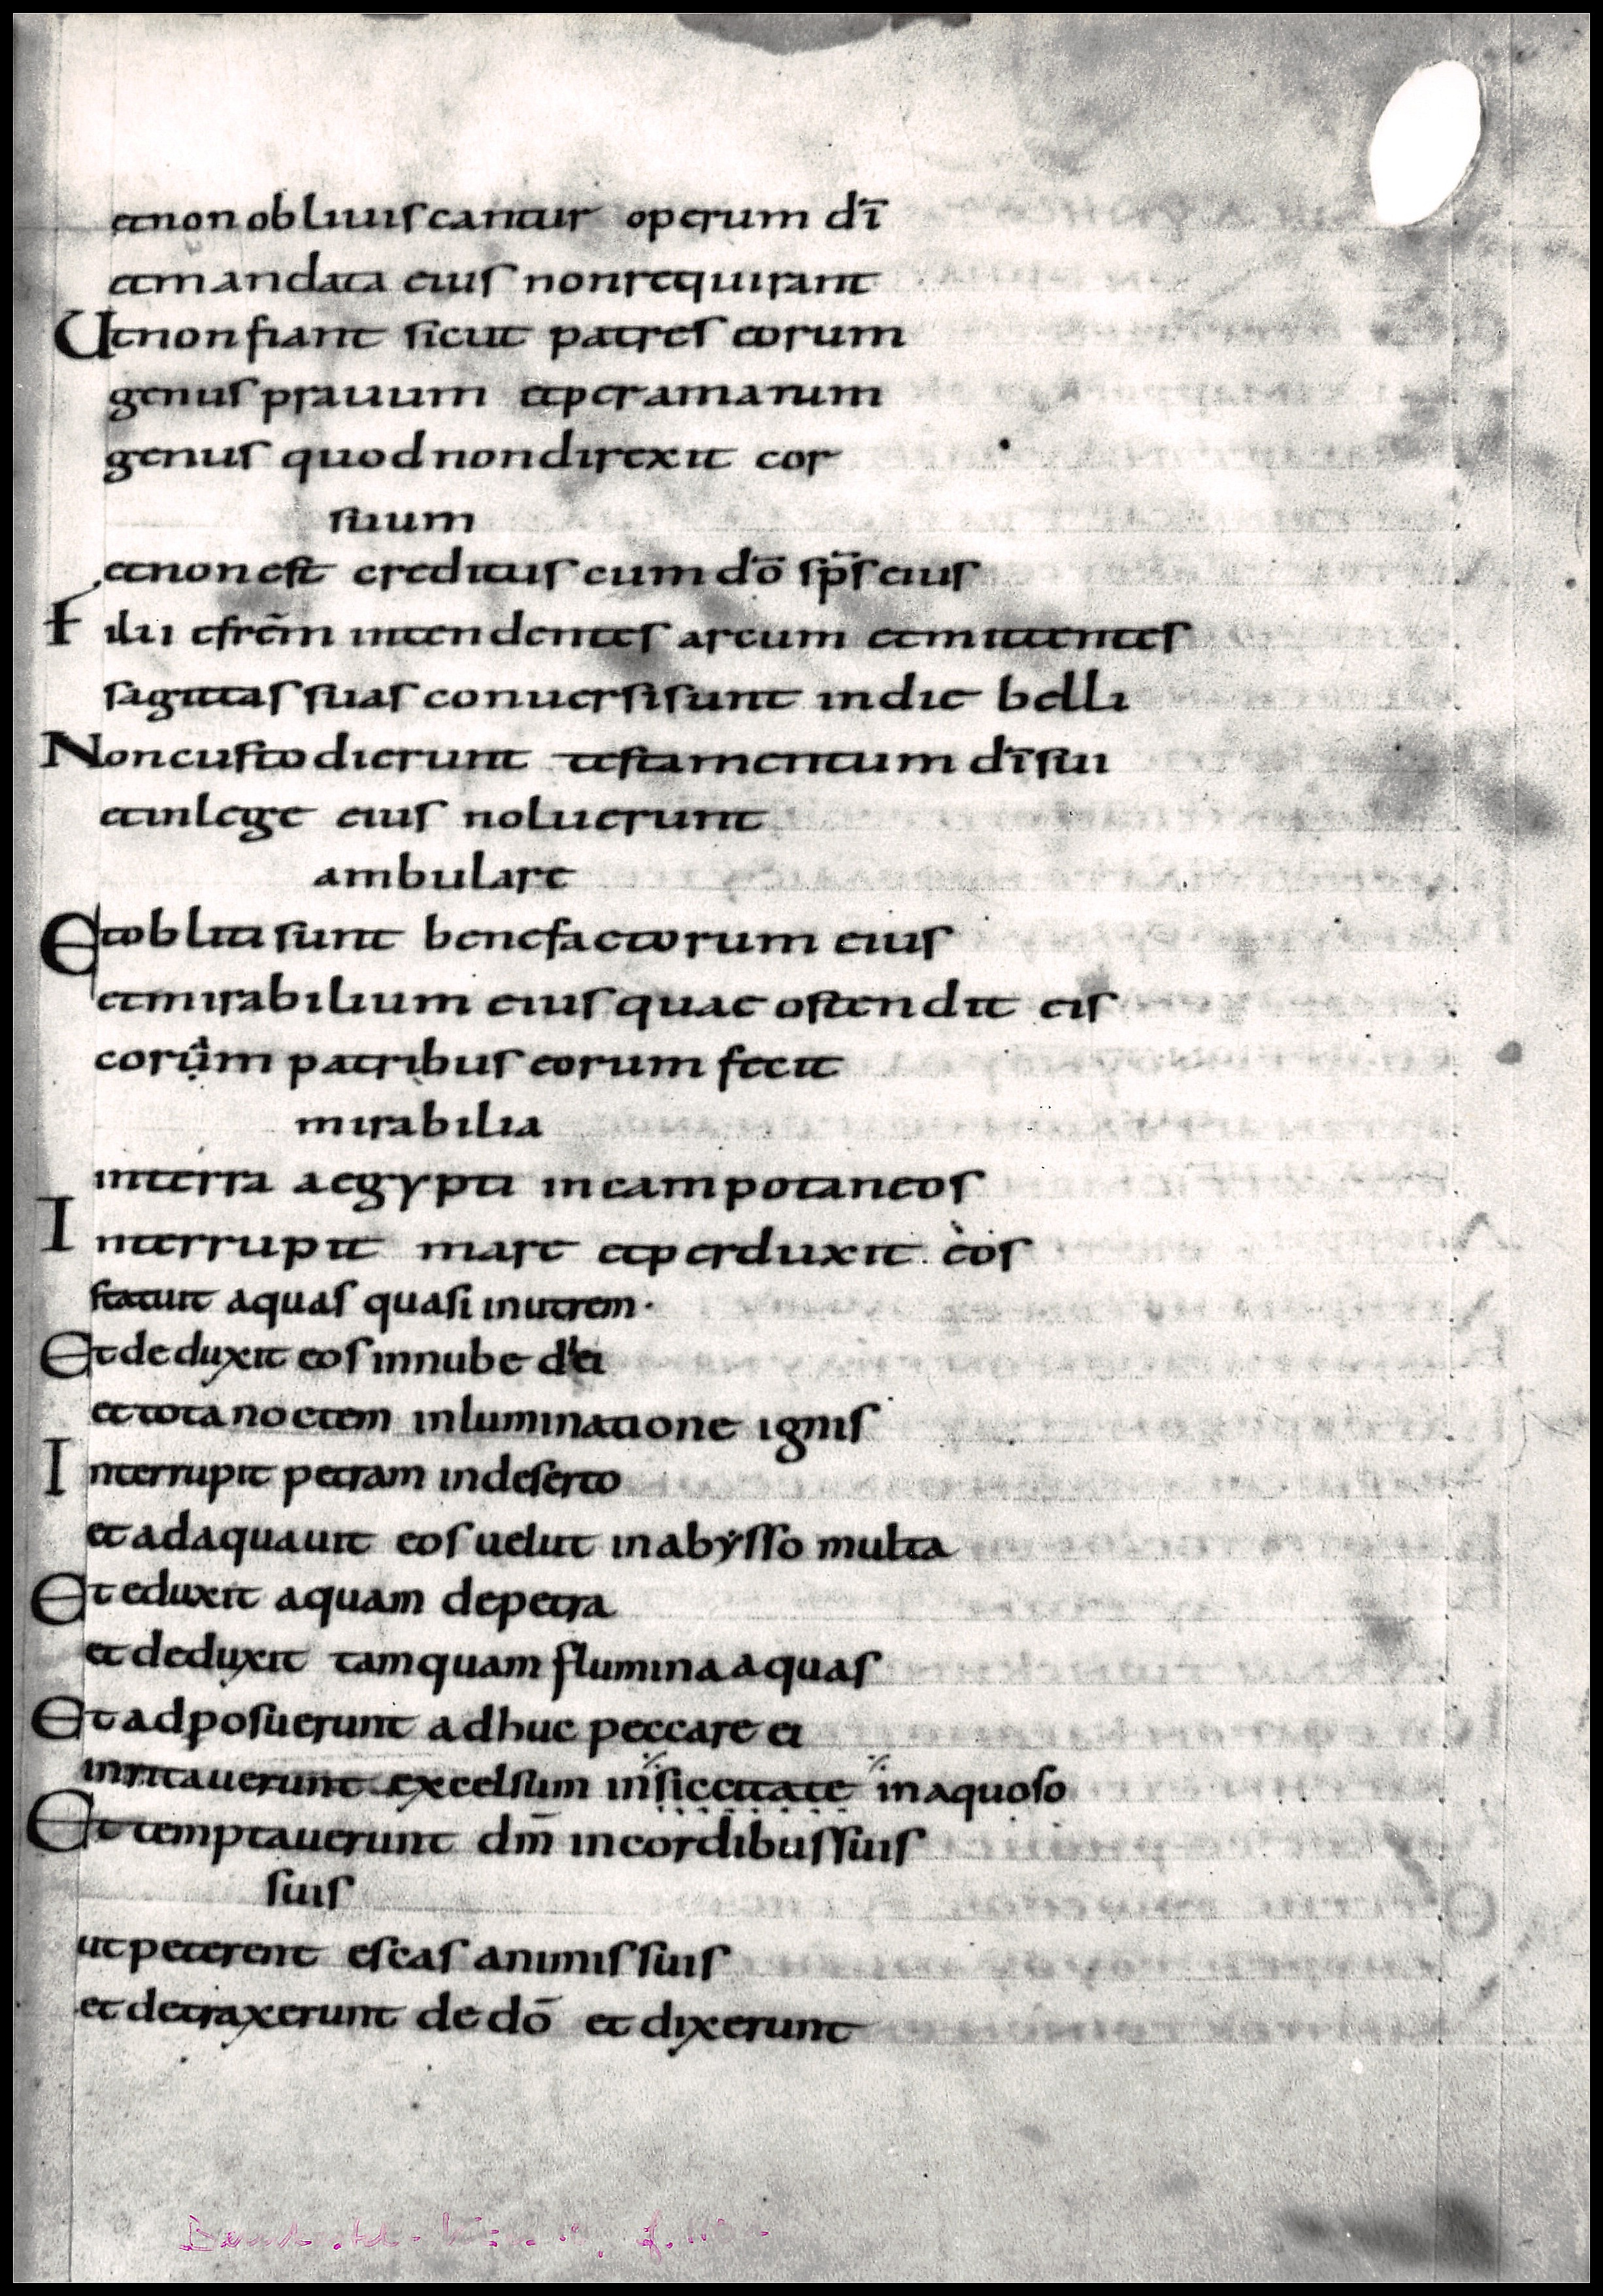 et non obliuiscantur operum dī
et mandata eius non requirant
Ut non fiant sicut patres eorum
genus prauum et peramarum
genus quod non direxit cor
suum
et non est creditus cum dō sp̄s eius
Filii efrēm intendentes arcum et mittentes
sagittas suas conuersi sunt in die belli
Non custodierunt testamentum dī sui
et in lege eius noluerunt
ambulare
Et obliti sunt benefactorum eius
et mirabilium eius quae ostendit eis
corum patribus eorum fecit
mirabilia
in terra aegypti in campo taneos
Interrupit mare et perduxit eos
statuit aquas quasi in utrem·
Et deduxit eos in nube diei
et tota noctem in luminatione ignis
Interrupit petram in deserto
et adaquauit eos uelut in abẏsso multa
Et eduxit aquam de petra
et deduxit tamquam flumina aquas
Et adposuerunt adhuc peccare ei
in ritauerunt excelsum in siccitate inaquoso
Et temptauerunt dm̄ in cordibus suis
suis
ut peterent escas animis suis
et detraxerunt de dō et dixerunt